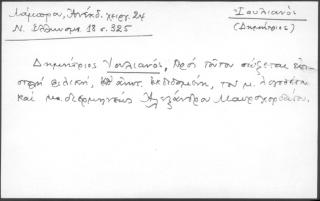 Λάμπρου, Ἀνέκδ. χειρ. 24
Ν. Ἑλληνομ. 18 σ. 325
Ἰουλιανός
(Δημήτριος)
Δημήτριος Ἰουλιανός, Πρὸς τοῦτον σώζεται ἐπι-
στολὴ φιλική, ἐκδεδομένη, τοῦ μ. λογοθέτου
καὶ μ. διερμηνέως Ἀλεξάνδρου Μαυροκορδάτου.